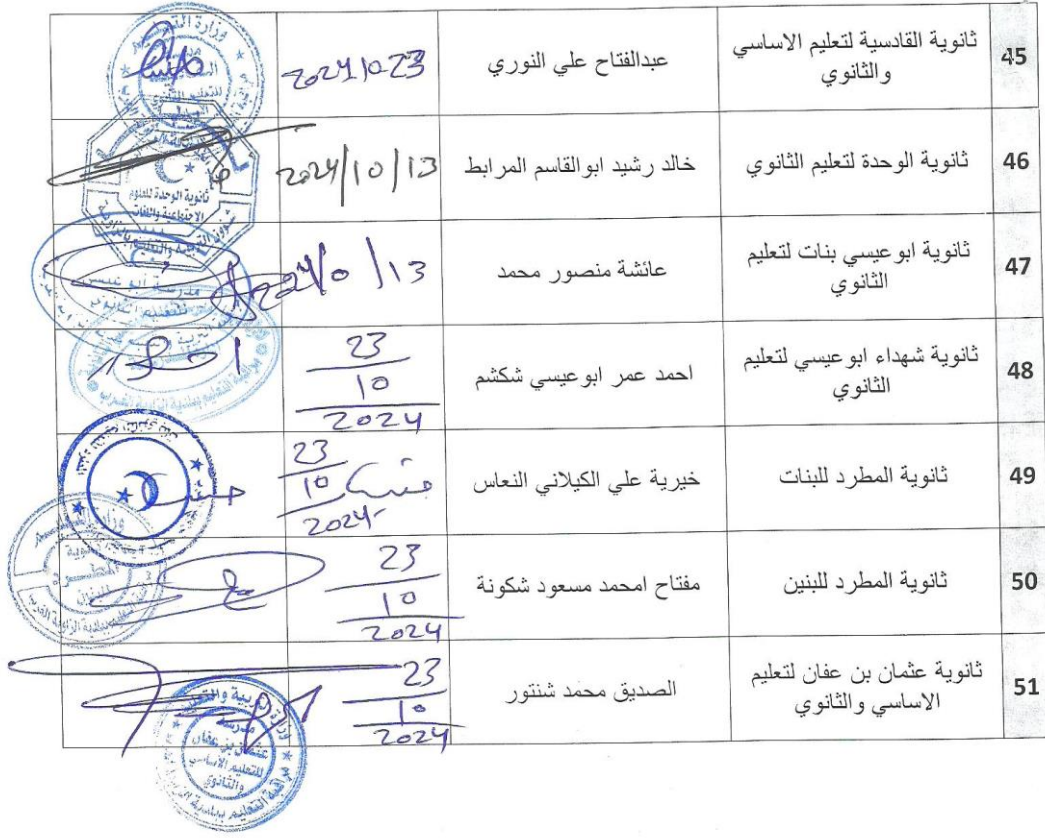 45
ثانوية القادسية لتعليم الاساسي
والثانوي
عبدالفتاح علي النوري
2024/10/23
46
ثانوية الوحدة لتعليم الثانوي
خالد رشيد ابوالقاسم المرابط
2024/10/13
ثانوية الوحدة للعلوم
الاجتماعية واللغات
47
ثانوية ابوعيسي بنات لتعليم
الثانوي
عائشة منصور محمد
13
48
ثانوية شهداء ابوعيسي لتعليم
الثانوي
احمد عمر ابوعيسي شكشم
23
10
2024
49
ثانوية المطرد للبنات
خيرية علي الكيلاني النعاس
23
10
2024
50
ثانوية المطرد للبنين
مفتاح امحمد مسعود شكونة
23
10
2024
51
ثانوية عثمان بن عفان لتعليم
الاساسي والثانوي
الصديق محمد شنتور
23
10
2024
مدرسة
عثمان بن عفان
للتعليم الأساسي
والثانوي